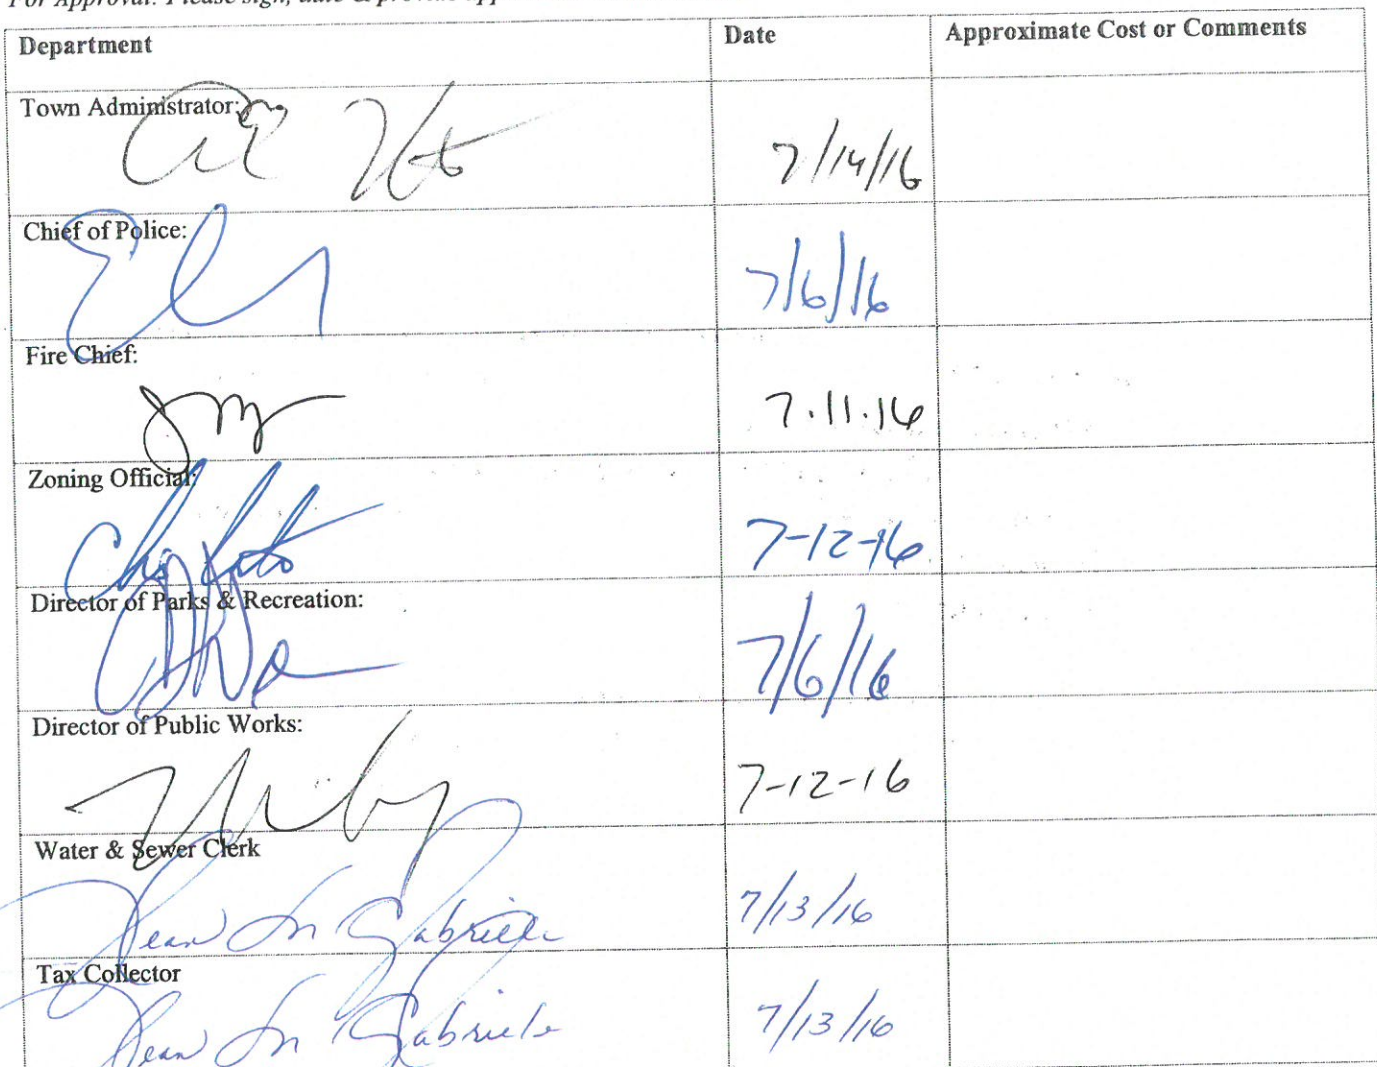 For Approval: Please sign, date &
Department Date Approximate Cost or Comments
Town Administrator: 7/14/16
Chief of Police: 7/6/16
Fire Chief: 7.11.16
Zoning Official: 7-12-16
Director of Parks & Recreation: 7/6/16
Director of Public Works: 7-12-16
Water & Sewer Clerk
Jean M Gabriele 7/13/16
Tax Collector
Jean M Gabriele 7/13/16